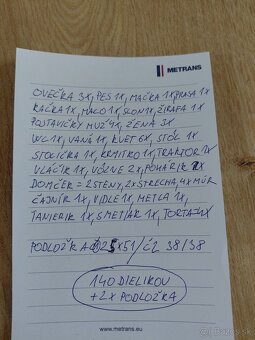 METRANS
OVEČKA 3X, PES 1X, MAČKA 1X, PRASA 1X
KAČKA 1X, MACO 1X, SLON 1X, ŽIRAFA 1X
POSTAVIČKY MUŽ 4X, ŽENA 3X
WC 1X, VAŇA 1X, KVET 6X, STÔL 1X
STOLIČKA 1X, KRMÍTKO 1X, TRAKTOR 1X
VLÁČIK 1X, VOZNE 2X, POHÁRIK 2X
DOMČEK = 2 STENY, 2X STRECHA, 4X MÚR
ČAJNÍK 1X, VIDLE 1X, METLA 1X
TANIERIK 1X, SMETIAR 1X, TORTA 4X
PODLOŽKA 25X51/ČZ 38/38
140 DIELIKOV
+2X PODLOŽKA
www.metrans.eu
bazos.sk